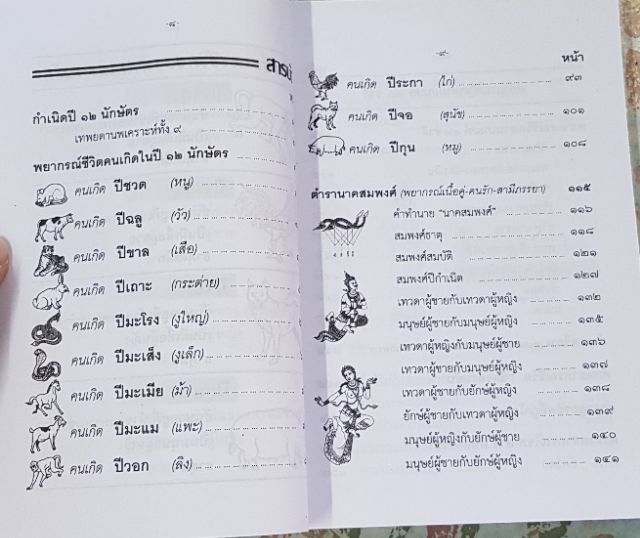 -๘-
สารบั
กำเนิดปี ๑๒ นักษัตร
เทพยดานพเคราะห์ทั้ง ๙
พยากรณ์ชีวิตคนเกิดในปี ๑๒ นักษัตร
คนเกิด ปีชวด (หนู)
คนเกิด ปีฉลู (วัว)
คนเกิด ปีขาล (เสือ)
คนเกิด ปีเถาะ (กระต่าย)
คนเกิด ปีมะโรง (งูใหญ่)
คนเกิด ปีมะเส็ง (งูเล็ก)
คนเกิด ปีมะเมีย (ม้า)
คนเกิด ปีมะแม (แพะ)
คนเกิด ปีวอก (ลิง)
-๙-
หน้า
คนเกิด ปีระกา (ไก่) ๙๓
คนเกิด ปีจอ (สุนัข) ๑๐๑
คนเกิด ปีกุน (หมู) ๑๐๘
ตำรานาคสมพงศ์ (พยากรณ์เนื้อคู่-คนรัก-สามีภรรยา) ๑๑๕
คำทำนาย "นาคสมพงศ์" ๑๑๖
สมพงศ์ธาตุ ๑๑๘
สมพงศ์สมบัติ ๑๒๑
สมพงศ์ปีกำเนิด ๑๒๗
เทวดาผู้ชายกับเทวดาผู้หญิง ๑๓๒
มนุษย์ผู้ชายกับมนุษย์ผู้หญิง ๑๓๕
เทวดาผู้หญิงกับมนุษย์ผู้ชาย ๑๓๖
เทวดาผู้ชายกับมนุษย์ผู้หญิง ๑๓๗
เทวดาผู้ชายกับยักษ์ผู้หญิง ๑๓๘
ยักษ์ผู้ชายกับเทวดาผู้หญิง ๑๓๙
มนุษย์ผู้หญิงกับยักษ์ผู้ชาย ๑๔๐
มนุษย์ผู้ชายกับยักษ์ผู้หญิง ๑๔๑